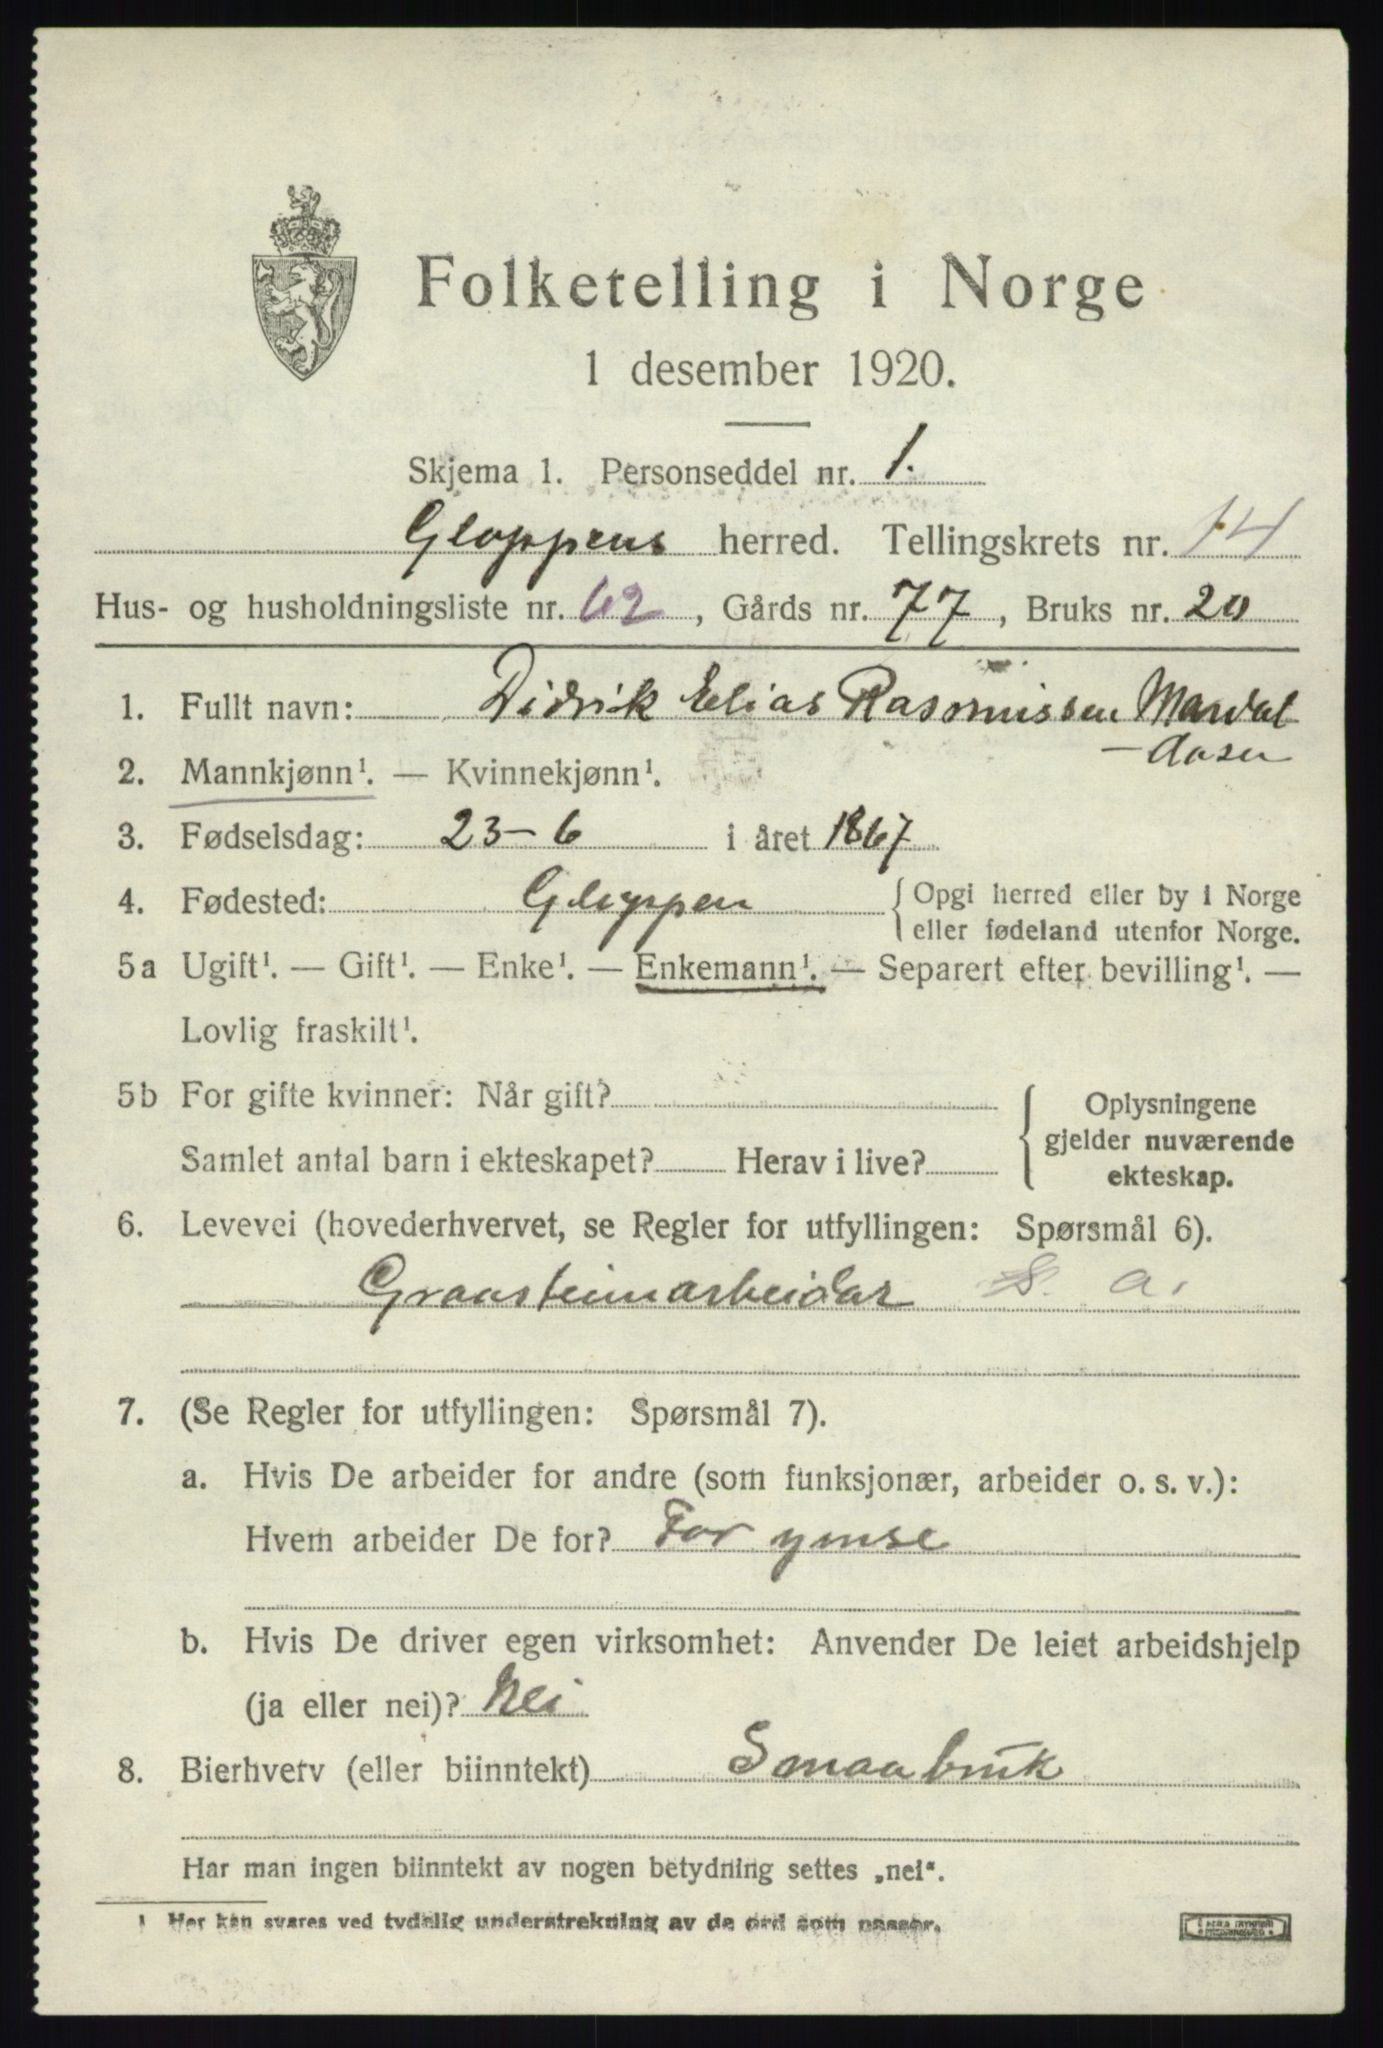 Folketelling i Norge
1 desember 1920.
Skjema 1. Personseddel nr. 1.
Gloppens herred. Tellingskrets nr. 14
Hus- og husholdningsliste nr. 62, Gårds nr. 77, Bruks nr. 20
1. Fullt navn: Didrik Elias Rasmussen Mardal
—Aasen
2. Mannkjønn¹. — Kvinnekjønn¹.
3. Fødselsdag: 23-6 i året 1867
4. Fødested: Gloppen { Opgi herred eller by i Norge
eller fødeland utenfor Norge.
5a Ugift¹. — Gift¹. — Enke¹. — Enkemann¹. — Separert efter bevilling¹. —
Lovlig fraskilt¹.
5b For gifte kvinner: Når gift? { Oplysningene
gjelder nuværende
Samlet antal barn i ekteskapet? Herav i live? ekteskap.
6. Levevei (hovederhvervet, se Regler for utfyllingen: Spørsmål 6).
Graasteinarbeidar S. a.
7. (Se Regler for utfyllingen: Spørsmål 7).
a. Hvis De arbeider for andre (som funksjonær, arbeider o. s. v.):
Hvem arbeider De for? For ymse
b. Hvis De driver egen virksomhet: Anvender De leiet arbeidshjelp
(ja eller nei)? Nei
8. Bierhverv (eller biinntekt) Smaabruk
Har man ingen biinntekt av nogen betydning settes „nei“.
1 Her kan svares ved tydelig understrekning av de ord som passer.